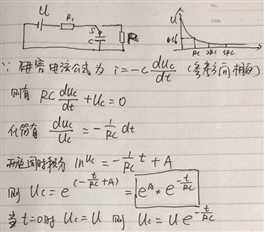 U
R₁
S
C
R
U
RC 2RC 3RC
∵ 研究电流公式为 i=-C duc/dt (参考方向相反)
则有 RC duc/dt + Uc = 0
化简有 duc/Uc = -1/RC dt
两边同时积分 ln uc = -1/RC t + A
则 Uc = e^(-t/RC + A) = e^A * e^(-t/RC)
当 t=0时 Uc = U 则 Uc = U e^(-t/RC)